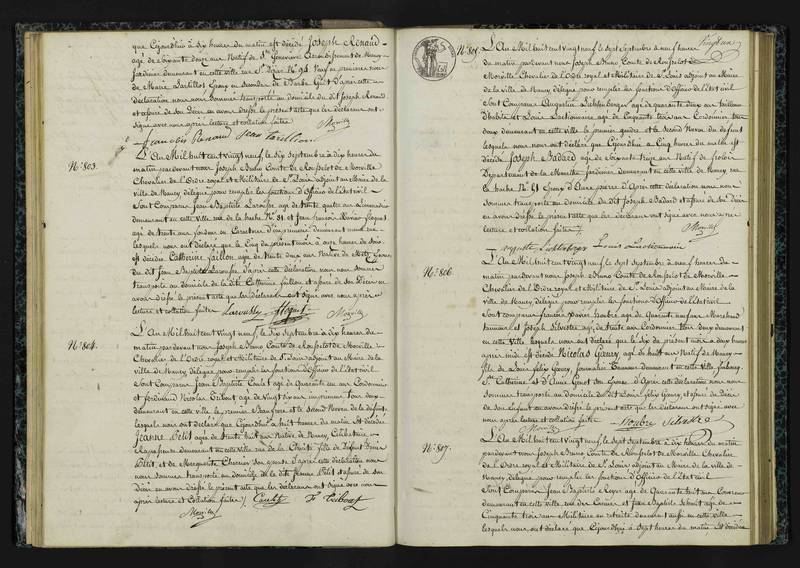 que Cejourdhui à dix heures du matin est décédé Joseph Renaud
âgé de soixante douze ans Natif de Ste Genevieve arrondissement de Nancy
Jardinier demeurant en cette ville rue St Dizier No 94 Veuf en premieres noces
de Marie et en secondes de Barbe D'après cette
déclaration nous nous sommes transporté au domicile du dit Joseph Renaud
et assuré de son Décès en avons dressé le présent acte que les déclarans ont
signé avec nous après lecture et collation faites
François Renaud Jean
No 803.
L'An Mil huit cent vingt neuf le dix Septembre à dix heures du
matin pardevant nous Joseph Bruno Comte de Rousselot de Morville
Chevalier de l'Ordre royal et Militaire de St Louis adjoint au Maire de la
ville de Nancy délégué pour remplir les fonctions d'Officier de l'état civil
Sont Comparus Jean Baptiste Larousse âgé de trente quatre ans
demeurant en cette ville rue de la hache No 81 et
âgé de trente ans fondeur en Caracteres d'imprimerie demeurant même rue
lesquels nous ont déclaré que le Cinq du présent mois à onze heures du Soir
est décédée Catherine Faillon âgée de trente deux ans Native de Metz Epouse
du dit Jean Baptiste Larousse d'après cette déclaration nous nous sommes
transporté au domicile de la dite Catherine Faillon et assuré de son Décès en
avons dressé le présent acte que les déclarans ont signé avec nous après
lecture et collation faites Larousse
No 804.
L'An Mil huit cent vingt neuf le dix Septembre à dix heures du
matin pardevant nous Joseph Bruno Comte de Rousselot de Morville
Chevalier de l'Ordre royal et Militaire de St Louis adjoint au Maire de la
ville de Nancy délégué pour remplir les fonctions d'Officier de l'état civil
Sont Comparus Jean Baptiste Coulet âgé de Quarante cinq ans Cordonnier
et Ferdinand Nicolas Thibout âgé de vingt six ans imprimeur tous deux
demeurant en cette ville le premier Beaufrere et le second Neveu de la défunte
lesquels nous ont déclaré que Cejourdhui à huit heures du matin est décédée
Jeanne Petit âgée de trente huit ans Native de Nancy Célibataire
Repasseuse demeurant en cette ville rue de la Charité fille de défunts
Petit et de Marguerite son épouse d'après cette déclaration nous
nous sommes transporté au domicile de la dite Jeanne Petit et assuré de son
Décès en avons dressé le présent acte que les déclarans ont signé avec nous
après lecture et Collation faites
No 805.
L'An Mil huit cent vingt neuf le sept Septembre à neuf heures
du matin pardevant nous Joseph Bruno Comte de Rousselot de
Morville Chevalier de l'Ordre royal et Militaire de St Louis adjoint au Maire
de la ville de Nancy délégué pour remplir les fonctions d'Officier de l'état civil
Sont Comparus Augustin Lichtenberger âgé de quarante deux ans tailleur
d'habits et Louis âgé de Cinquante trois ans Cordonnier tous
deux demeurant en cette ville le premier gendre et le second Neveu du defunt
lesquels nous ont déclaré que Cejourdhui à Cinq heures du matin est
décédé Joseph Badard âgé de soixante treize ans Natif de frolois
Département de la Meurthe Jardinier demeurant en cette ville de Nancy rue
la hache No 41 Epoux d'Anne D'après Cette déclaration nous nous
sommes transporté au domicile du dit Joseph Badard et assuré de son Décès
en avons dressé le présent acte que les déclarans ont signé avec nous après
lecture et collation faites
No 806.
L'An Mil huit cent vingt neuf le sept Septembre à neuf heures du
matin pardevant nous Joseph Bruno Comte de Rousselot de Morville
Chevalier de l'Ordre royal et Militaire de St Louis adjoint au Maire de la
ville de Nancy délégué pour remplir les fonctions d'Officier de l'état civil
Sont comparus françois Xavier âgé de Quarante neuf ans Marchand
et Joseph Silvestre âgé de trente ans Cordonnier tous deux demeurant
en cette ville lesquels nous ont déclaré que le Six du présent mois à deux heures
après midi est décédé Nicolas Gaury âgé de huit ans Natif de Nancy
fils de Louis felix Gaury, Journalier demeurant en cette ville faubourg
Ste Catherine et d'Anne Genet son Epouse D'Après Cette déclaration nous nous
sommes transporté au domicile du dit Louis felix Gaury et assuré du Décès
de son Enfant en avons dressé le présent acte que les déclarans ont signé avec
nous après lecture et collation faites
No 807.
L'An Mil huit cent vingt neuf le sept Septembre à dix heures du matin
pardevant nous Joseph Bruno Comte de Rousselot de Morville Chevalier
de l'Ordre royal et Militaire de St Louis adjoint au Maire de la ville de
Nancy délégué pour remplir les fonctions d'Officier de l'état civil
Sont Comparus Jean Baptiste âgé de Quarante huit ans
demeurant en cette ville rue des et Jean Baptiste Schmit âgé de
Cinquante trois ans Militaire en retraite demeurant aussi en cette ville
lesquels nous ont déclaré que Cejourdhui à Sept heures du matin est décédée